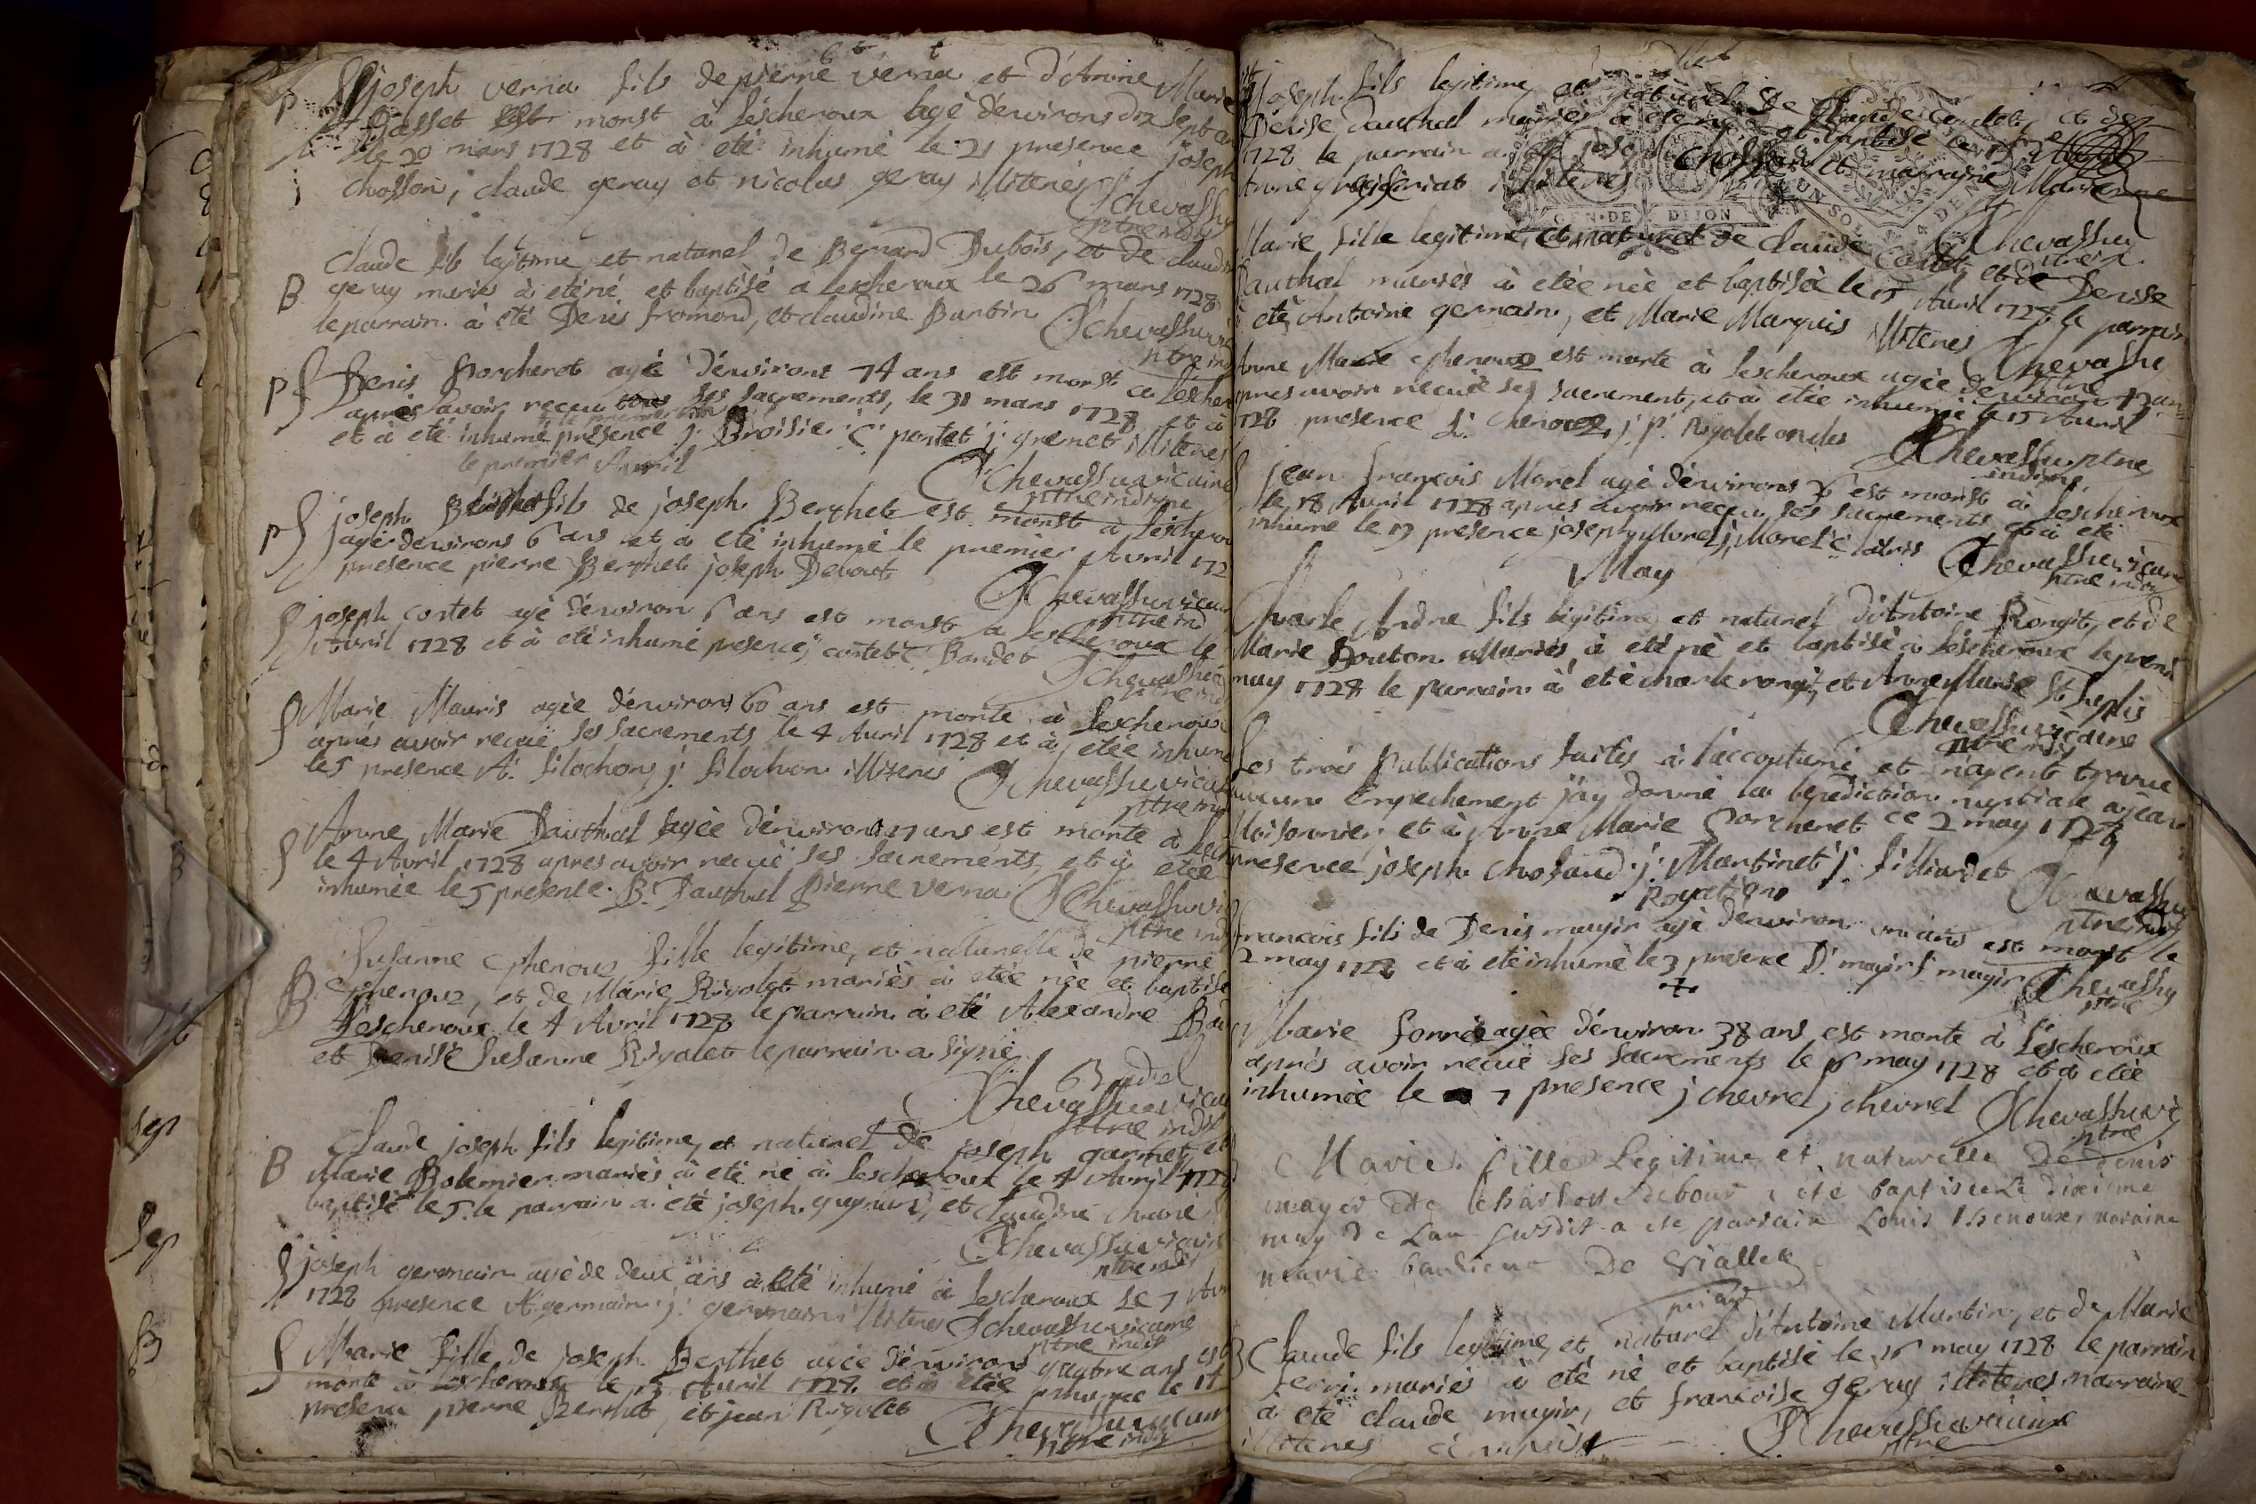 joseph verna fils de pierre verna et d'Anne Marie
Basset est mort à léscheroux agé dénvirons dix sept ans
le 20 mars 1728 et à eté inhumé le 21 presence joseph
chosson, claude geray et nicolas geray illiteres
Chevassu
ptre indi
Claude fils legitime et naturel de Benard Dubois, et de claudi
geray mariés à eté né et baptisé a lescheroux le 26 mars 1728
le parrain à été Denis fromond, et claudine Buntin
Chevassu
ptre ind
Denis Porcheret agé dénvirons 74 ans est mort a Lescher
aprés avoir receu ses sacrements, le 31 mars 1728 et à
et à eté inhumé presence j: Broisie C: pontet j: gremet illiteres
le premier Avril
Chevassu vicaire
ptre indigne
joseph fils de joseph Berthet est mort à léschero
agé dénvirons 6 ans et à eté inhumé le premier Avril 172
presence pierre Berthet joseph Debout
Chevassu vicai
ptre ind
joseph contet agé dénviron 6 ans est mort a lescheroux le
Avril 1728 et à eté inhumé presence j: contet C: Bandet
Chevassu
ptre ind
Marie Mauris agée dénvirons 60 ans est morte à Lescheroux
aprés avoir recuë ses sacrements le 4 Avril 1728 et à etée inhum
le 5 presence A: filochon j: filochon illiteres
Chevassu vicai
ptre ind
Anne Marie Dauthel agée dénvirons 27 ans est morte à Lesch
le 4 Avril 1728 apres avoir recuë ses sacrements, et à etée
inhumée le 5 presence B: Dauthel pierre verna
Chevassu vi
ptre ind
Susanne Chenoux fille legitime, et naturelle de pierre
Chenoux, et de Marie Rigolet mariés à etée née et baptise
Lescheroux le 4 Avril 1728 le parrain à eté Alexandre Bau
et Denise Susanne Rigolet le parrain a signé
Chevassu vicai
ptre indi
B Claude joseph fils legitime, et naturel de joseph garnier et
Marie Bolemier mariés à eté né à lescheroux le 4 Avril 172
baptisé le 5 le parrain a été joseph guynard, et claudine
Chevassu vicaire
ptre indi
joseph germain agé de deux ans à eté inhumé à Lescheroux le 7 Avr
1728 presence A: germain j: germain illiteres
Chevassu vicaire
ptre indi
Marie fille de joseph Berthet agée dénvirons quatre ans est
morte à Lescheroux le 13 Avril 1728 et à etée inhumée le 14
presence pierre Berthet, et jean Rigolet
Chevassu vicair
ptre indi
joseph fils legitime et naturel de Claude contet, et de
Denise Dauthel mariés à eté né et baptisé le 15 Avril
1728 le parrain a eté joseph Chosson et marraine Marie
Anne illiteres
GEN. DE DIJON
UN SOL
Chevassu
Marie fille legitime, et naturel de Claude Contet, et de Denise
Dauthel mariés à etée née et baptisée le 15 Avril 1728 le parrain
à eté Antoine germain, et Marie Marquis illiteres
Chevassu
ptre
Anne Marie Chenoux est morte à Lescheroux agée denviron 13 ans
apres avoir recuë ses sacrement, et à etée inhumée le 15 Avril
1728 presence L: Chenoux j: p: Rigolet oncles
Chevassu ptre
indigne
jean francois Morel agé dénvirons 26 est mort à Lescheroux
le 18 Avril 1728 apres avoir receu ses sacrements et à eté
inhumé le 19 presence joseph Morel j: Morel C:
Chevassu vicaire
ptre indi
May
Charle Andre fils legitime et naturel d'Antoine Rongit, et de
Marie Bouton mariés à eté né et baptisé à léscheroux le premi
may 1728 le parrain à eté charle rongit, et Anne Marie St Suplis
Chevassu vicaire
ptre indi
Les trois Publications faites à l'accoutumé et n'ayent trouvé
aucun émpechement j'ay donné la benediction nuptiale a jean
Moisonnier et à Anne Marie Porcheret ce 2 may 1728
presence joseph Chosand j: Martinet j: filliardet
Chevassu
ptre ind
Rogations
francois fils de Denis mayir agé dénviron ans est mort le
2 may 1728 et à eté inhumé le 3 presence D: mayir f: mayir
Chevassu
ptre
Marie forré agée dénviron 38 ans est morte à Léscheroux
aprés avoir recuë ses sacrements le 6 may 1728 et à etée
inhumée le 7 presence j chevrel j chevrel
Chevassu vic
ptre
Marie fille Legitime et naturelle De denis
mayer Et De Charlotte Debout a eté baptisée Le dixieme
may De Lan susdit a ete parrain Louis Chenoux maraine
marie De Vialley
B Claude fils legitime, et naturel d'Antoine Murtin, et de Marie
ferri mariés à eté né et baptisé le 16 may 1728 le parrain
à eté claude mayir, et francoise geray illiteres marraine
illiteres
Chevassu vicaire
ptre